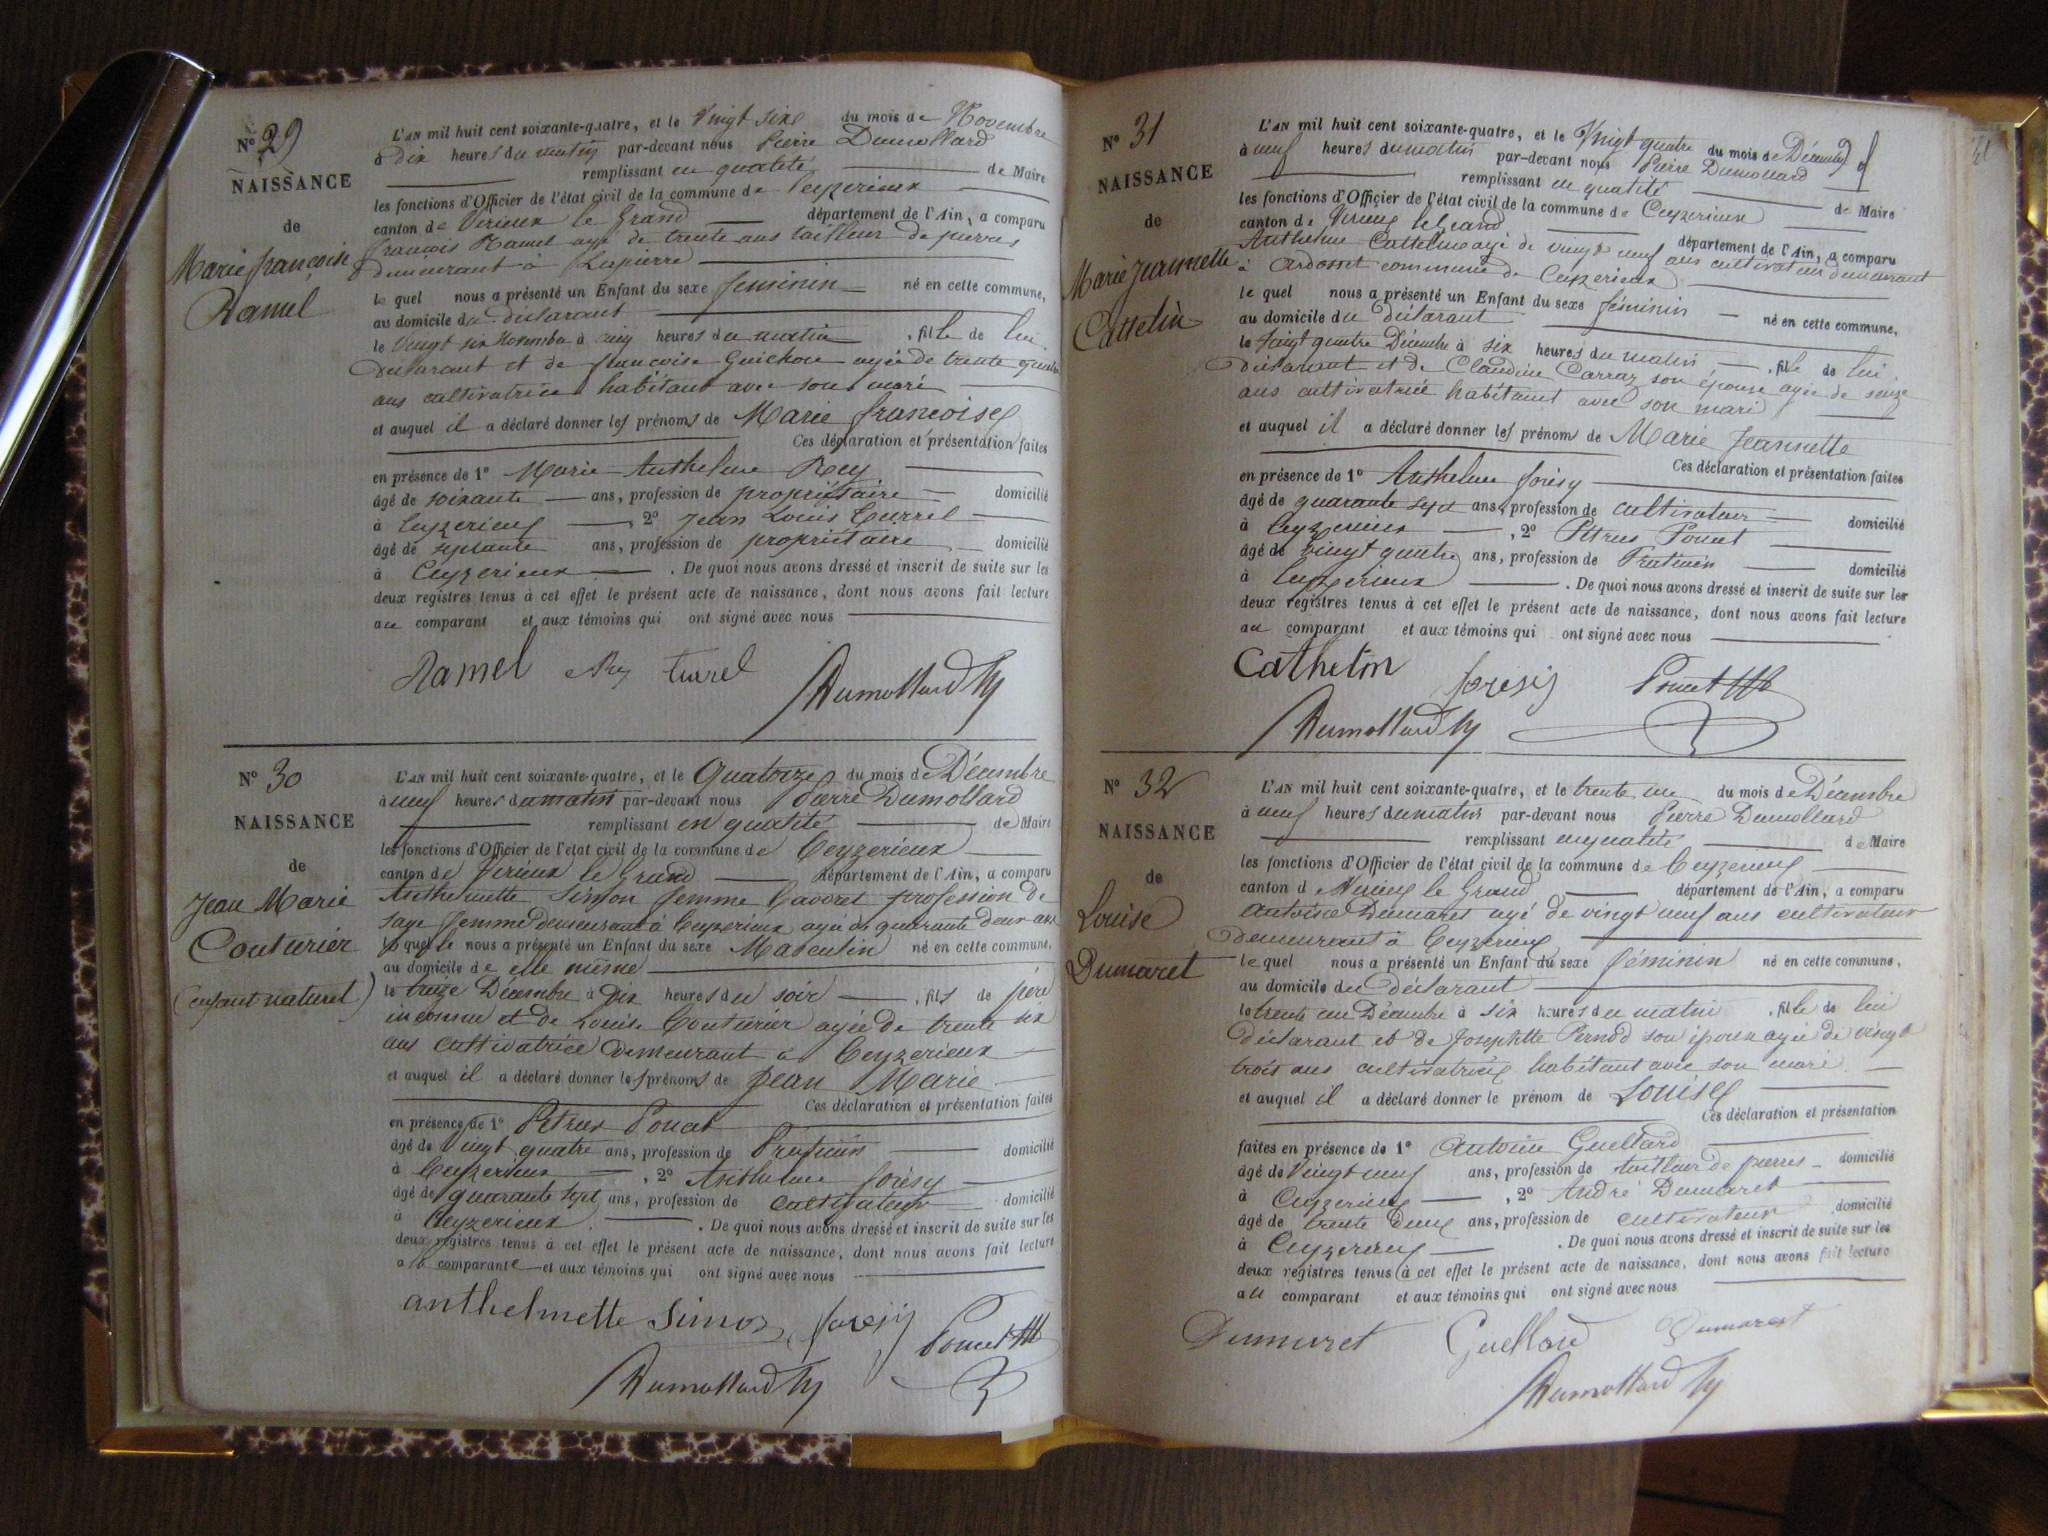 N° 29
NAISSANCE
de
Marie françoise
Ramel
L'AN mil huit cent soixante-quatre, et le Vingt six du mois de Novembre
à dix heures du matin par-devant nous Pierre Dumollard
remplissant en qualité de Maire
les fonctions d'Officier de l'état civil de la commune de Ceyzerieux
canton de Virieux le Grand département de l'Ain, a comparu
françois Ramel agé de trente ans tailleur de pierres
demeurant à
le quel nous a présenté un Enfant du sexe feminin né en cette commune,
au domicile du déclarant
le Vingt six Novembre à cinq heures du matin, fille de lui
déclarant et de françoise Guichon agée de trente quatre
ans cultivatrice habitant avec son mari
et auquel il a déclaré donner les prénoms de Marie françoise
Ces déclaration et présentation faites
en présence de 1° Marie Anthelme Rey
âgé de soixante ans, profession de propriétaire domicilié
à Ceyzerieux, 2° Jean Louis Currel
âgé de septante ans, profession de propriétaire domicilié
à Ceyzerieux. De quoi nous avons dressé et inscrit de suite sur les
deux registres tenus à cet effet le présent acte de naissance, dont nous avons fait lecture
au comparant et aux témoins qui ont signé avec nous
Ramel Rey
Dumollard
N° 30
NAISSANCE
de
Jean Marie
Couturier
(enfant naturel)
L'AN mil huit cent soixante-quatre, et le Quatorze du mois de Décembre
à neuf heures du matin par-devant nous Pierre Dumollard
remplissant en qualité de Maire
les fonctions d'Officier de l'état civil de la commune de Ceyzerieux
canton de Virieux le Grand département de l'Ain, a comparu
Anthelmette Simon femme Gavoret profession de
sage femme demeurant à Ceyzerieux agée de quarante deux ans
quelle nous a présenté un Enfant du sexe Masculin né en cette commune,
au domicile de elle même
le treize Décembre à dix heures du soir, fils de père
inconnu et de Louise Couturier agée de trente six
ans cultivatrice demeurant à Ceyzerieux
et auquel il a déclaré donner les prénoms de Jean Marie
Ces déclaration et présentation faites
en présence de 1° Pétrus Poncet
âgé de Vingt quatre ans, profession de Praticien domicilié
à Ceyzerieux, 2° Anthelme forésy
âgé de quarante sept ans, profession de cultivateur domicilié
à Ceyzerieux. De quoi nous avons dressé et inscrit de suite sur les
deux registres tenus à cet effet le présent acte de naissance, dont nous avons fait lecture
a la comparante et aux témoins qui ont signé avec nous
anthelmette Simon foresy Poncet
Dumollard
N° 31
NAISSANCE
de
Marie Jeannette
Cattelin
L'AN mil huit cent soixante-quatre, et le Vingt quatre du mois de Décembre
à neuf heures du matin par-devant nous Pierre Dumollard
remplissant en qualité de Maire
les fonctions d'Officier de l'état civil de la commune de Ceyzerieux
canton de Virieux le Grand département de l'Ain, a comparu
Anthelme Cattelin agé de vingt neuf ans cultivateur demeurant
à Ardosset commune de Ceyzerieux
le quel nous a présenté un Enfant du sexe féminin né en cette commune,
au domicile du déclarant
le Vingt quatre Décembre à six heures du matin, fille de lui
déclarant et de Claudine Carraz son épouse agée de seize
ans cultivatrice habitant avec son mari
et auquel il a déclaré donner les prénoms de Marie Jeannette
Ces déclaration et présentation faites
en présence de 1° Anthelme forésy
âgé de quarante sept ans, profession de cultivateur domicilié
à Ceyzerieux, 2° Pétrus Poncet
âgé de vingt quatre ans, profession de Praticien domicilié
à Ceyzerieux. De quoi nous avons dressé et inscrit de suite sur les
deux registres tenus à cet effet le présent acte de naissance, dont nous avons fait lecture
au comparant et aux témoins qui ont signé avec nous
Cathelin foresy Poncet
Dumollard
N° 32
NAISSANCE
de
Louise
Dumaret
L'AN mil huit cent soixante-quatre, et le trente un du mois de Décembre
à neuf heures du matin par-devant nous Pierre Dumollard
remplissant en qualité de Maire
les fonctions d'Officier de l'état civil de la commune de Ceyzerieux
canton de Virieux le Grand département de l'Ain, a comparu
Antoine Dumaret agé de vingt neuf ans cultivateur
demeurant à Ceyzerieux
le quel nous a présenté un Enfant du sexe féminin né en cette commune,
au domicile du déclarant
le trente un Décembre à six heures du matin, fille de lui
déclarant et de Josephtte Pernod son épouse agée de vingt
trois ans cultivatrice habitant avec son mari
et auquel il a déclaré donner le prénom de Louise
Ces déclaration et présentation
faites en présence de 1° Antoine Guellard
âgé de Vingt neuf ans, profession de tailleur de pierres domicilié
à Ceyzerieux, 2° André Dumaret
âgé de trente deux ans, profession de cultivateur domicilié
à Ceyzerieux. De quoi nous avons dressé et inscrit de suite sur les
deux registres tenus à cet effet le présent acte de naissance, dont nous avons fait lecture
au comparant et aux témoins qui ont signé avec nous
Dumaret Guellard Dumarest
Dumollard